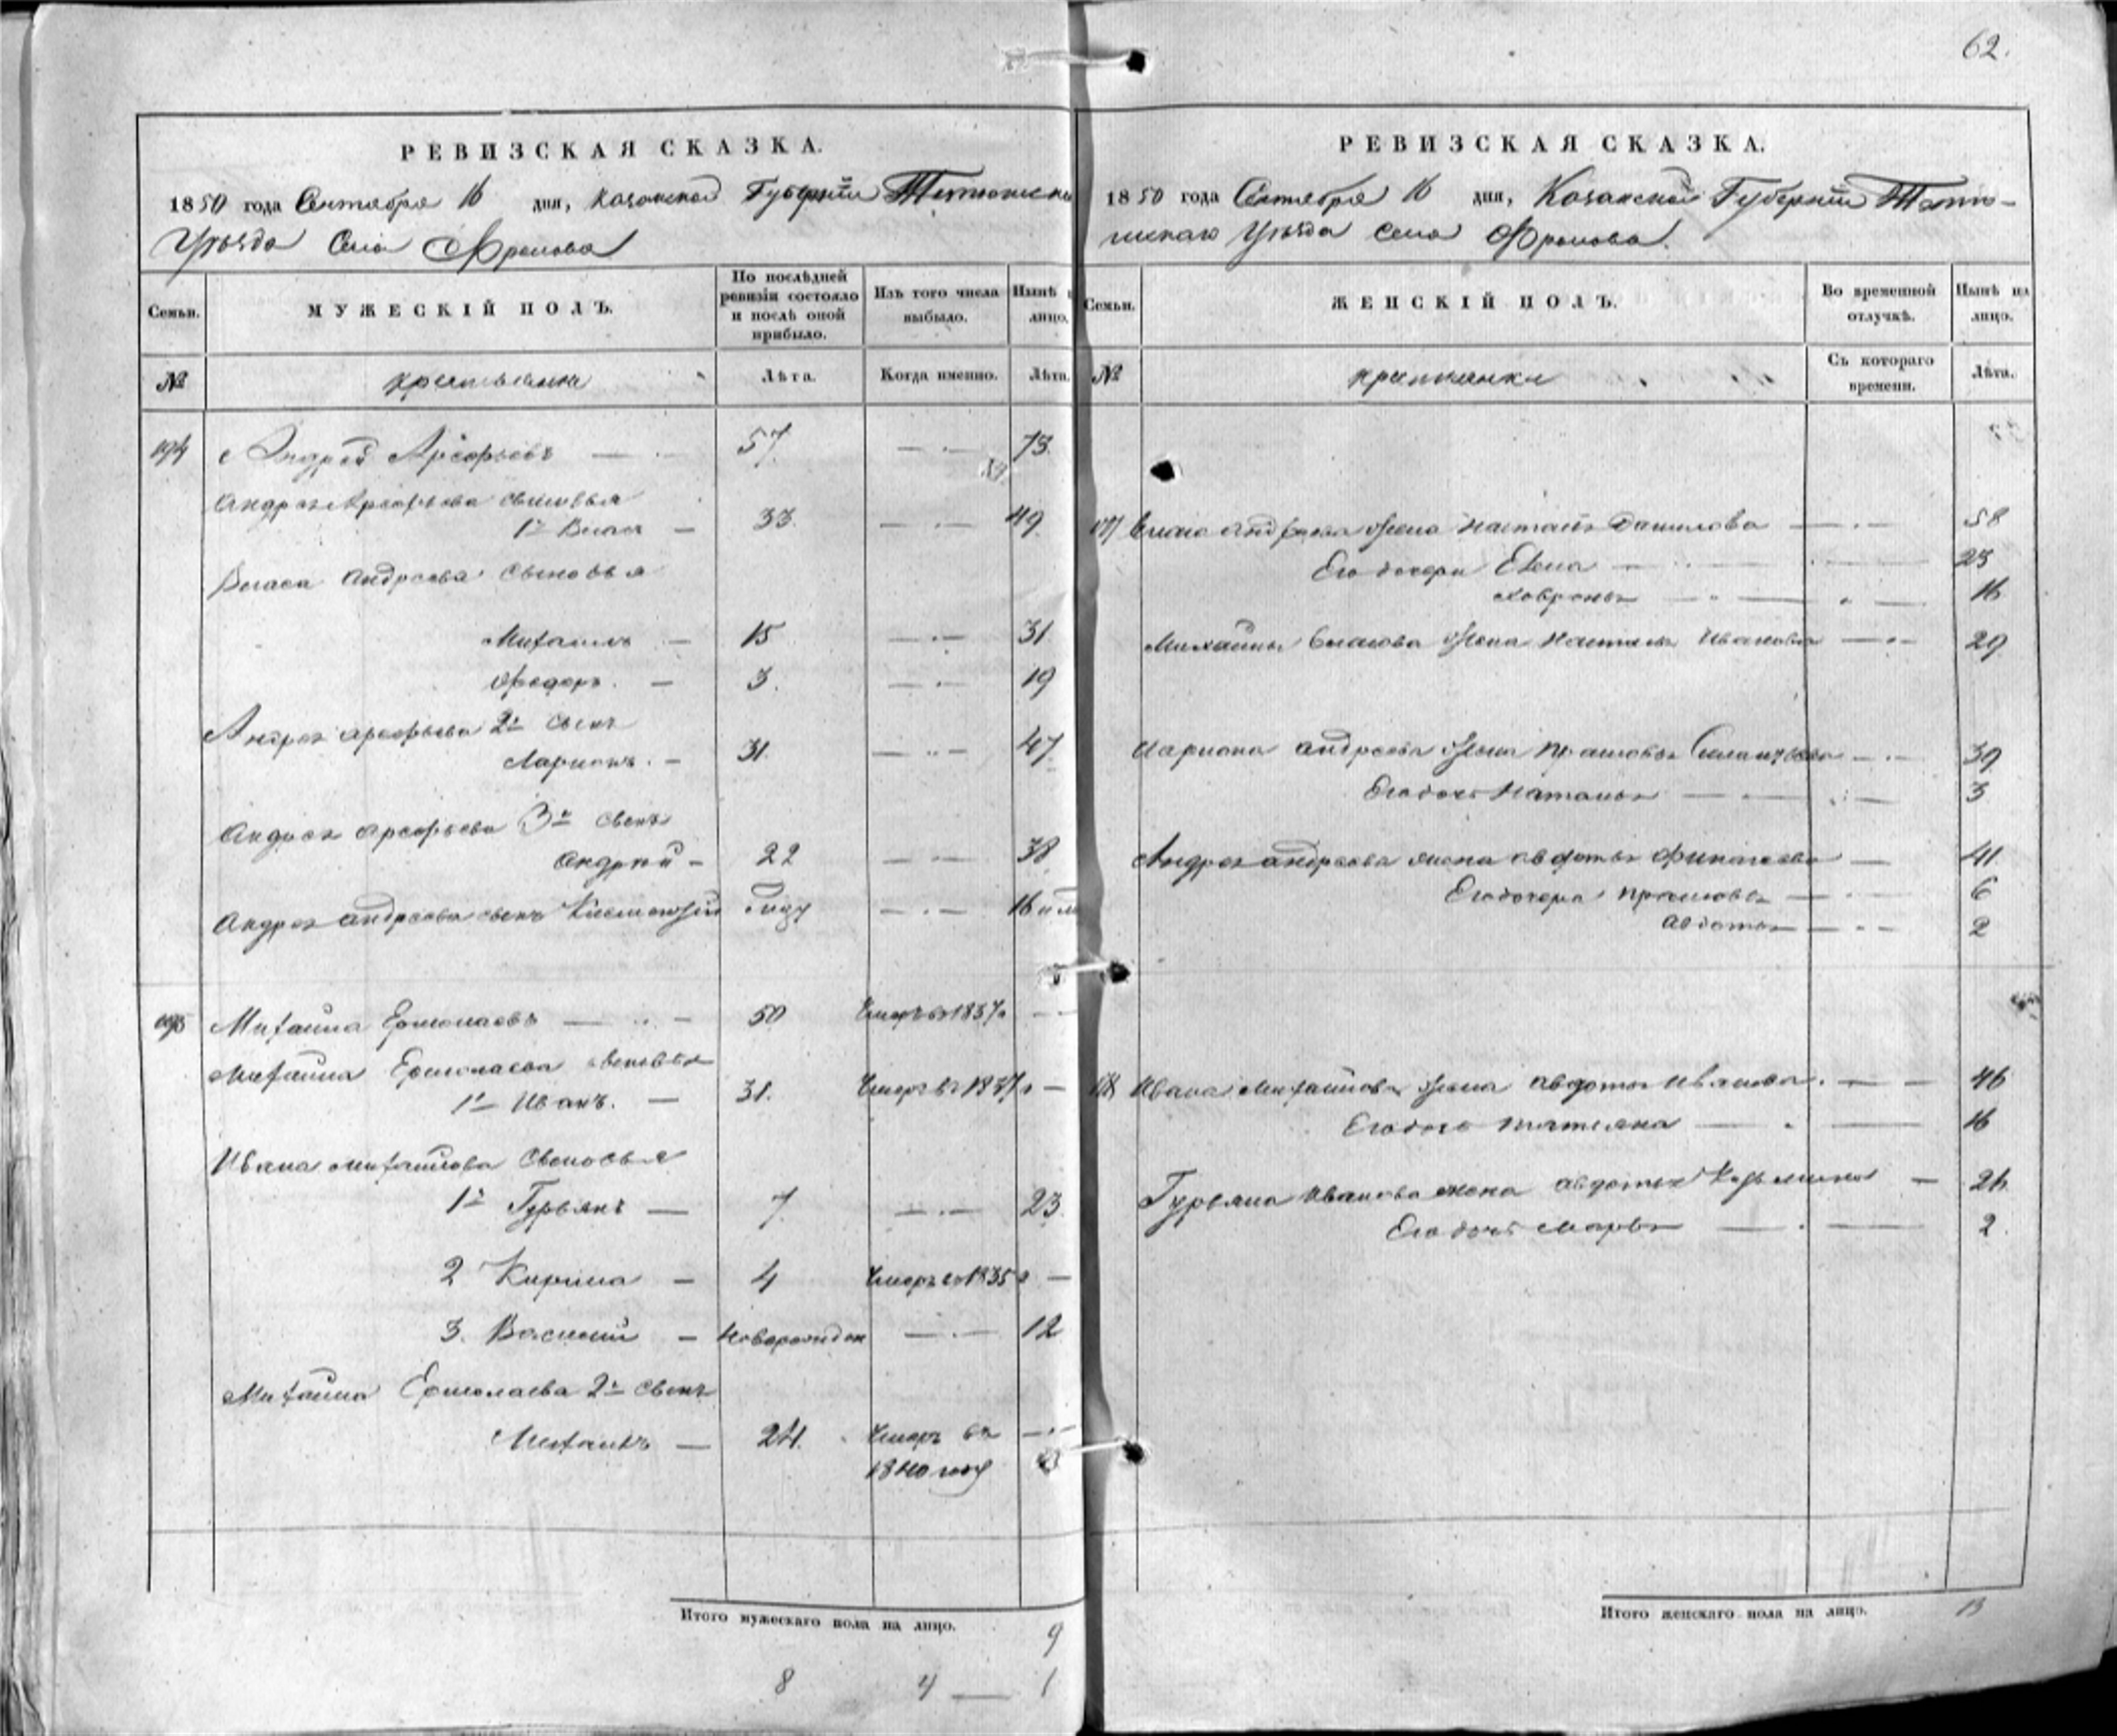 62.
РЕВИЗСКАЯ СКАЗКА.
1850 года Сентября 16 дня, Казанской Губерніи Тетюшска
Уѣзда Села Фролова
Семьи.
МУЖЕСКІЙ ПОЛЪ.
По послѣдней ревизіи состояло и послѣ оной прибыло.
Изъ того числа выбыло.
Нынѣ лицо.
№
крестьяни
Лѣта.
Когда именно.
Лѣта.
194 Андрей Арефьевъ 57 73
Андрея Арефьева сыновья
1й Власъ 33. 49
Власа Андреева сыновья
Михаилъ 15 31
Федоръ. 3. 19
Андрея Арефьева 2й сынъ
Ларионъ. 31. 47
Андрея Арефьева 3й сынъ
Андрей 22 38
Андрея Андреева сынъ году 16
195 Михайла Ермолаевъ 50 Умеръ въ 1837
Михайла Ермолаева сыновья
1й Иванъ. 31. Умеръ въ 1837
Ивана Михайлова сыновья
1й Гурьянъ 7 23
2 Кирила 4 Умеръ въ 1835
3. Василий Новорожден 12
Михайла Ермолаева 2й сынъ
Михаилъ 24. Умеръ въ
1840 году
Итого мужескаго пола на лицо. 9
8 4 1
РЕВИЗСКАЯ СКАЗКА.
1850 года Сентября 16 дня, Казанской Губерніи Тетю-
шскаго Уѣзда Села Фролова.
Семьи.
ЖЕНСКІЙ ПОЛЪ.
Во временной отлучкѣ.
Нынѣ на лицо.
№
крестьянки
Съ котораго времени.
Лѣта.
Власа Андреева жена Настасья Данилова 58
Его дочери Елена 23
Хавронья 16
Михайлы Власова жена Наталья Иванова 29
Лариона Андреева жена Прасковья 39
Его дочь Наталья 3
Андрея Андреева жена Авдотья 41
Его дочери Прасковья 6
Авдотья 2
Ивана Михайлова жена Авдотья Иванова. 46
Его дочь Татьяна 16
Гурьяна Иванова жена Авдотья Козьмина 24
Его дочь Марья 2
Итого женскаго пола на лицо. 13